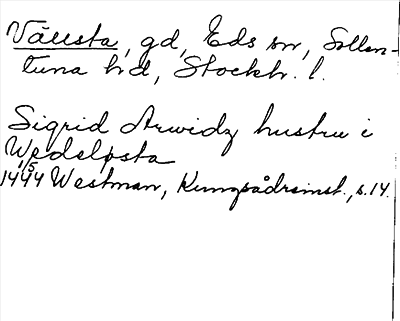 Vällsta, gd, Eds sn, Sollen-
tuna hd, Stockh. l.
Sigrid Arwidz hustru i
Wedeløsta
1/5
1444 Westman, Kungsådreinst., s. 14.